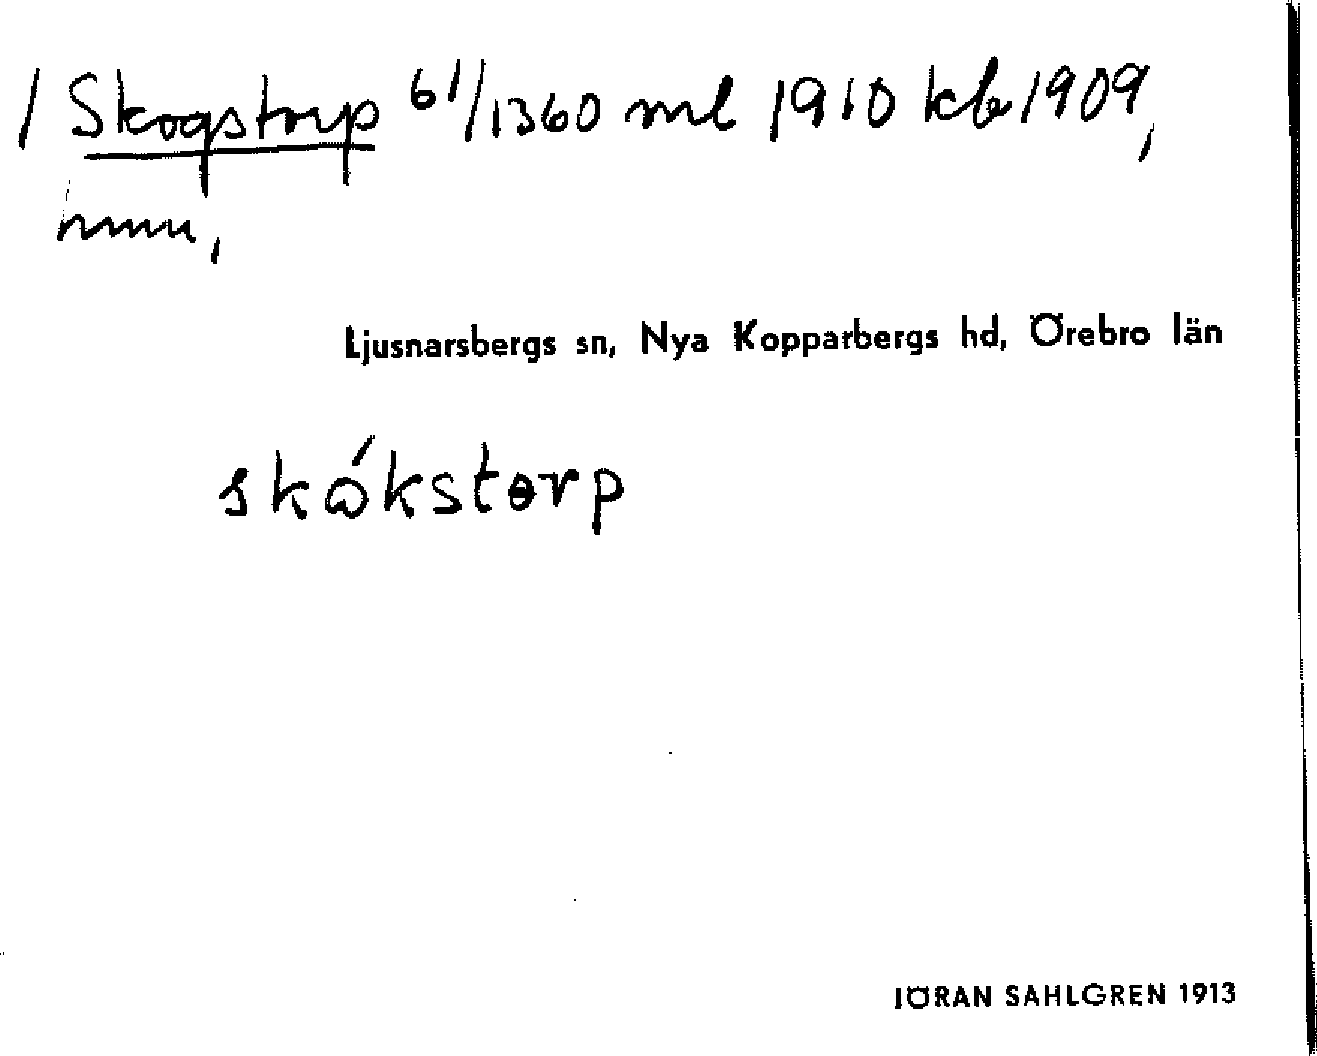 / Skogstorp 61/1360 ml 1910 kb 1909,
hmn,
Ljusnarsbergs sn, Nya Kopparbergs hd, Örebro län
skókstorp
JÖRAN SAHLGREN 1913